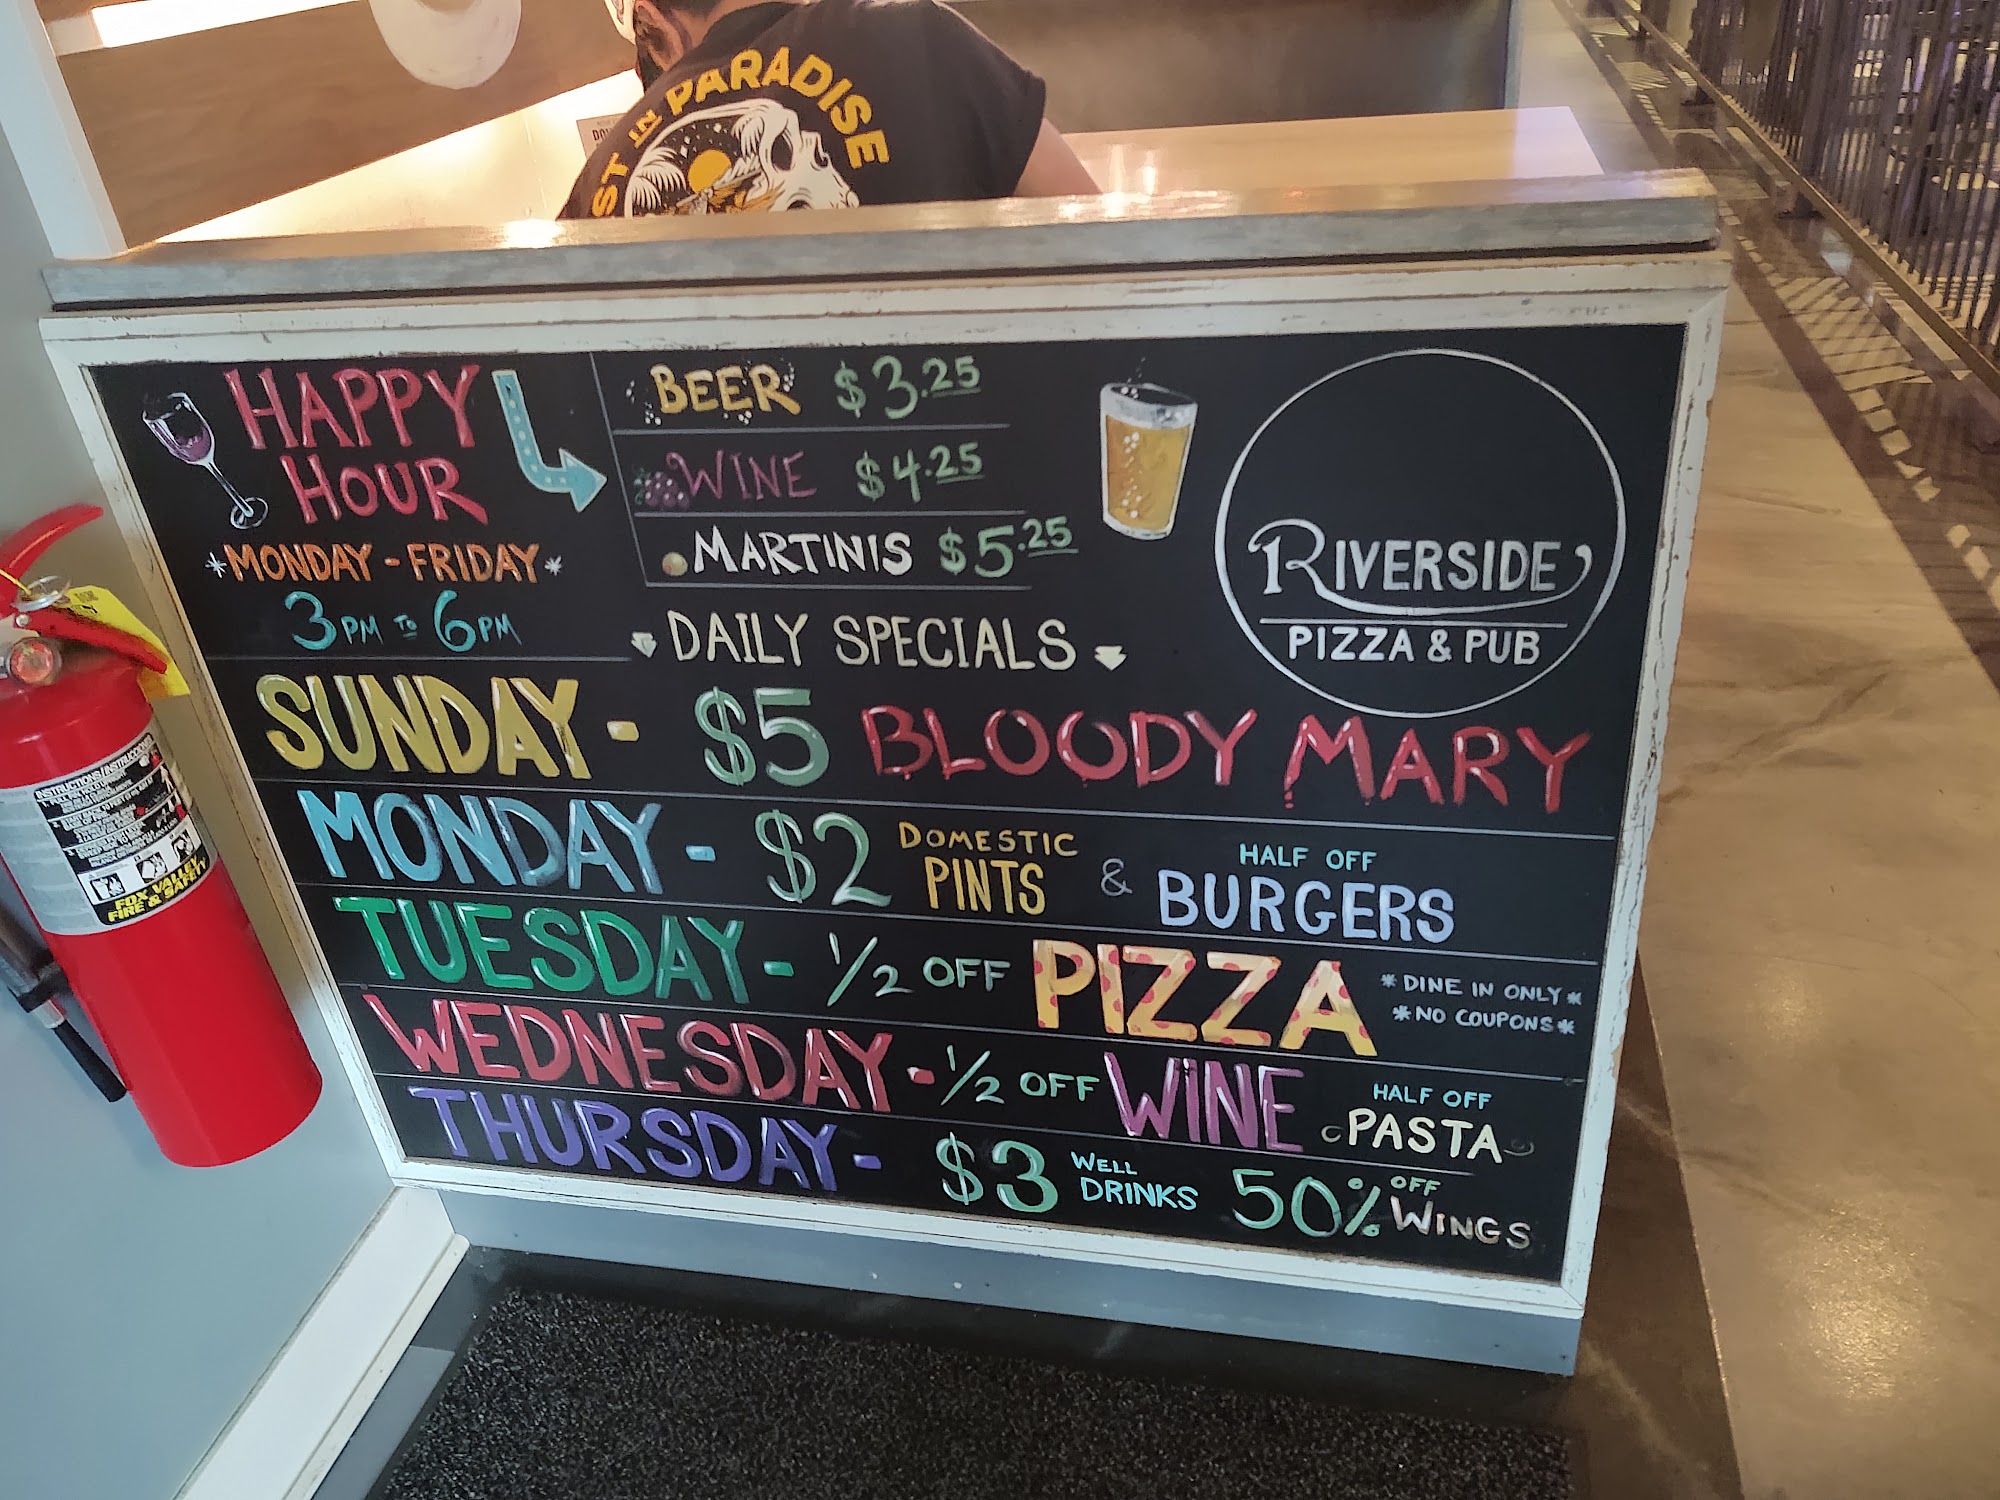 ST IN PARADISE
HAPPY
HOUR
*MONDAY - FRIDAY*
3PM TO 6PM
BEER $3.25
WINE $4.25
MARTINIS $5.25
RIVERSIDE
PIZZA & PUB
DAILY SPECIALS
SUNDAY - $5 BLOODY MARY
MONDAY - $2 DOMESTIC PINTS & HALF OFF BURGERS
TUESDAY - 1/2 OFF PIZZA *DINE IN ONLY*
*NO COUPONS*
WEDNESDAY - 1/2 OFF WINE HALF OFF PASTA
THURSDAY - $3 WELL DRINKS 50% OFF WINGS
INSTRUCTIONS/INSTRUCCIONES
FOX VALLEY
FIRE & SAFETY